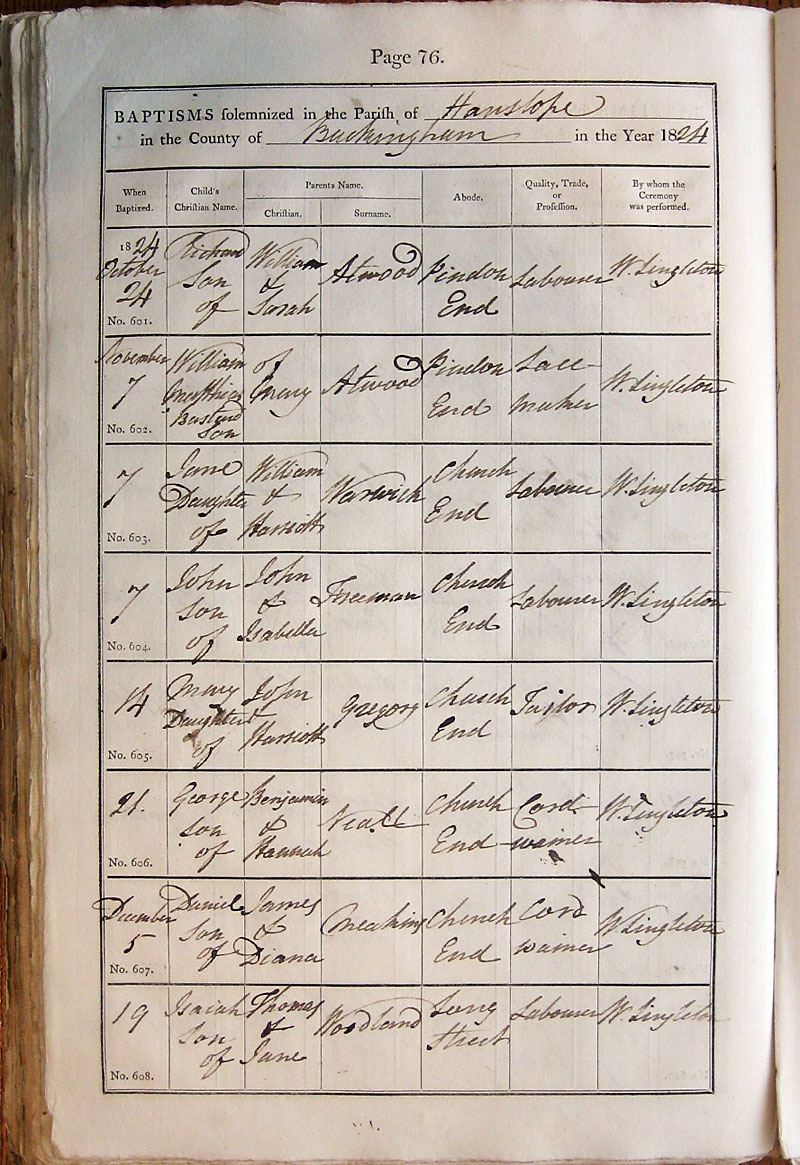 Page 76.
BAPTISMS solemnized in the Parish of Hanslope
in the County of Buckingham in the Year 1824
When Baptized. Child's Christian Name. Parents Name. Abode. Quality, Trade, or Profession. By whom the Ceremony was performed.
Christian. Surname.
1824 Richard William Atwood Pindon Labourer W. Singleton
October son & End
24 of Sarah
No. 601.
November William of Atwood Pindon Lace W. Singleton
7 Matthias Mary End maker
Bastard
No. 602. son
7 Jane William Warwick Church Labourer W. Singleton
Daughter & End
of Harriott
No. 603.
7 John John Freeman Church Labourer W. Singleton
son & End
of Isabella
No. 604.
14 Mary John Gregory Church Tailor W. Singleton
Daughter & End
of Harriott
No. 605.
21. George Benjamin Neall Church Cord W. Singleton
son & End wainer
of Hannah
No. 606.
December Daniel James Meakins Church Cord W. Singleton
5 son & End wainer
of Diana
No. 607.
19 Isaiah Thomas Woodland Long Labourer W. Singleton
son & Street
of Jane
No. 608.